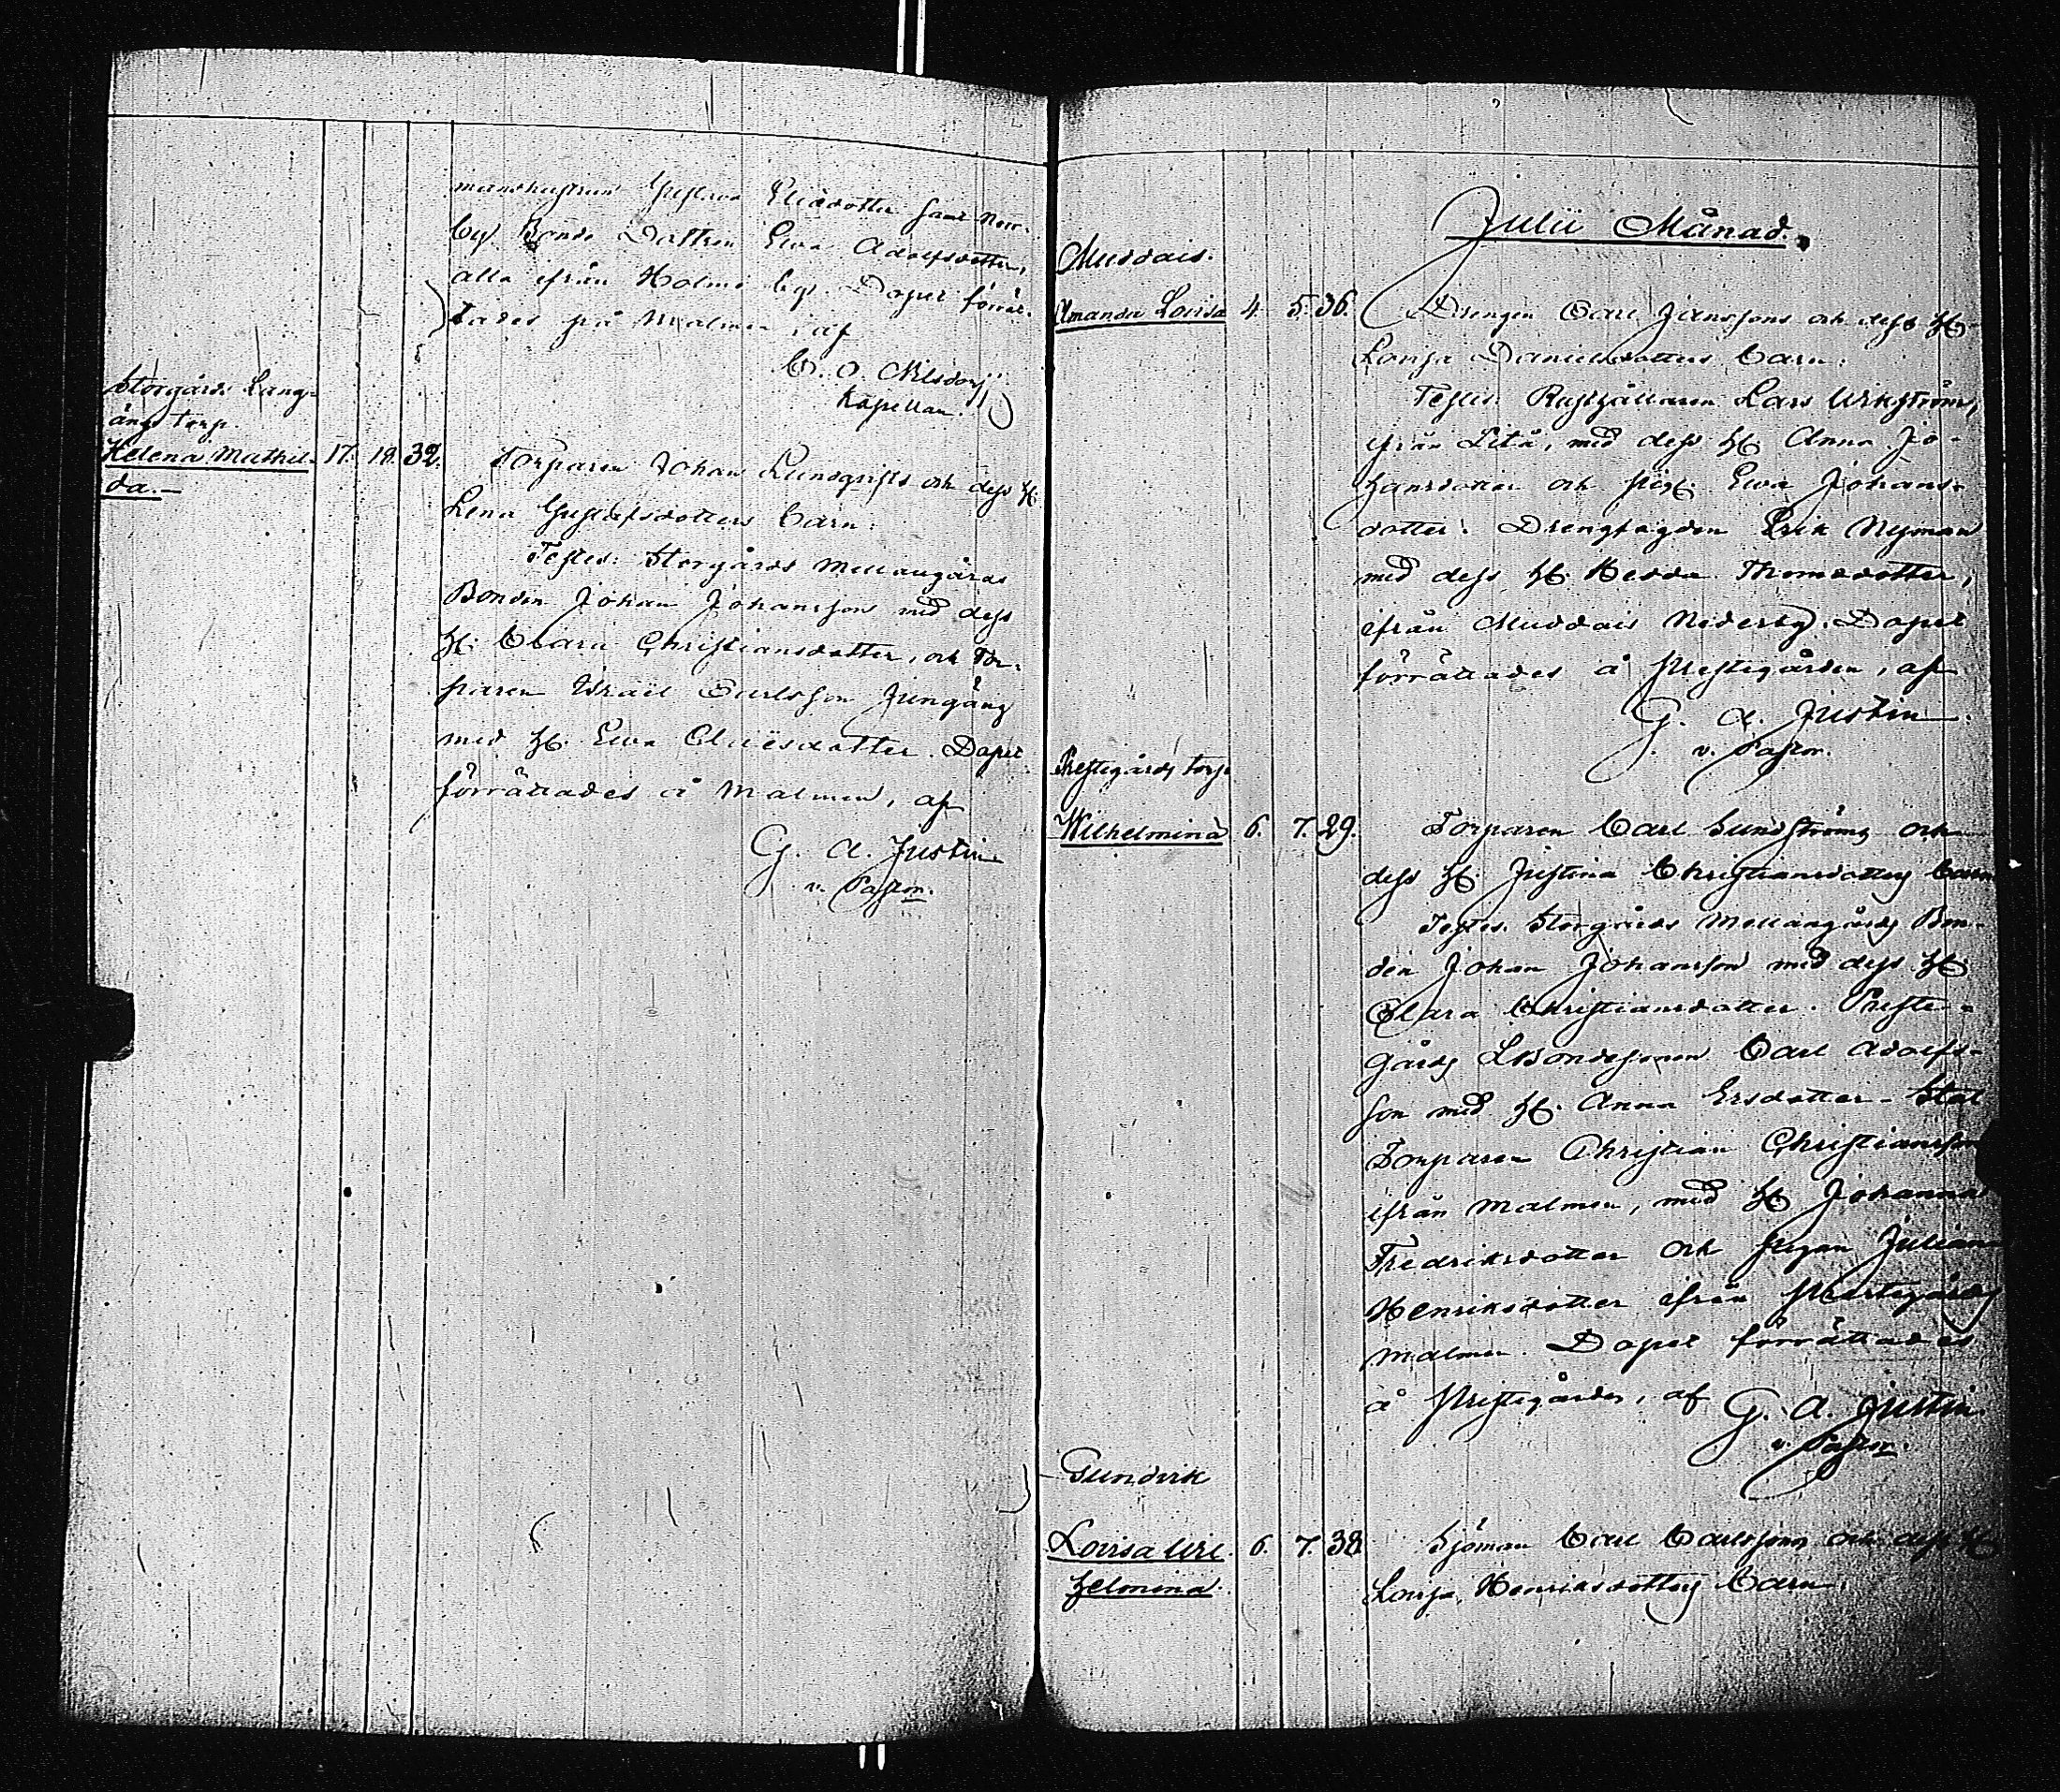 Gustava Elisdotter samt Norr-
by Bonde Dottren Ewa Adolfsdotter,
alla ifrån Holma by. Dopet förrät-
tades på Malmen af
C. O.
Kapellan.
Storgårds Lång-
ängs torp.
Helena Mathil- 17. 18. 32. Torparen Johan Lundqvists och dess H.
da.
Lena Gustafsdotters barn.
Testes: Storgårds Mellangårds
Bonden Johan Johansson med dess
H. Clara Christiansdotter, och Tor-
paren Israël Carlsson Ljungäng
med H. Ewa dotter. Dopet
förrättades å Malmen, af
G. A. Justin
v. Pastor.
Julii Månad.
Muddais.
Amanda Lovisa 4. 5. 36. Drengen Carl Janssons och dess H.
Lovisa Danielsdotters barn.
Testes: Rusthållaren Lars Wikström,
ifrån Litå, med dess H. Anna Jo-
hansdotter och pig. Ewa Johans-
dotter. Drengfogden Erik Nyman
med dess H. Hedda Thomsdotter,
ifrån Muddais Nederby. Dopet
förrättades å prestegården, af
G. A. Justin
v. Pastor.
Prestegårds torp
Wilhelmina 6. 7. 29. Torparen Carl Sundströms och
dess H. Justina Christiansdotters barn
Testes. Storgårds Mellangårds Bon-
den Johan Johansson med dess H.
Clara Christiansdotter. Preste-
gårds LBondesonen Carl Adolfs-
son med H. Anna Ersdotter. Stat
Torparen Christian Christiansson
ifrån Malmen, med H. Johanna
Fredriksdotter och pigan Juliana
Henriksdotter ifrån Prestegårds
malmen. Dopet förrättades
å Prestegården, af G. A. Justin
v. Pastor.
Sundvik
Lovisa Wil- 6. 7. 38. Sjöman Carl Carlssons och dess H.
helmina.
Lovisa Henriksdotters barn